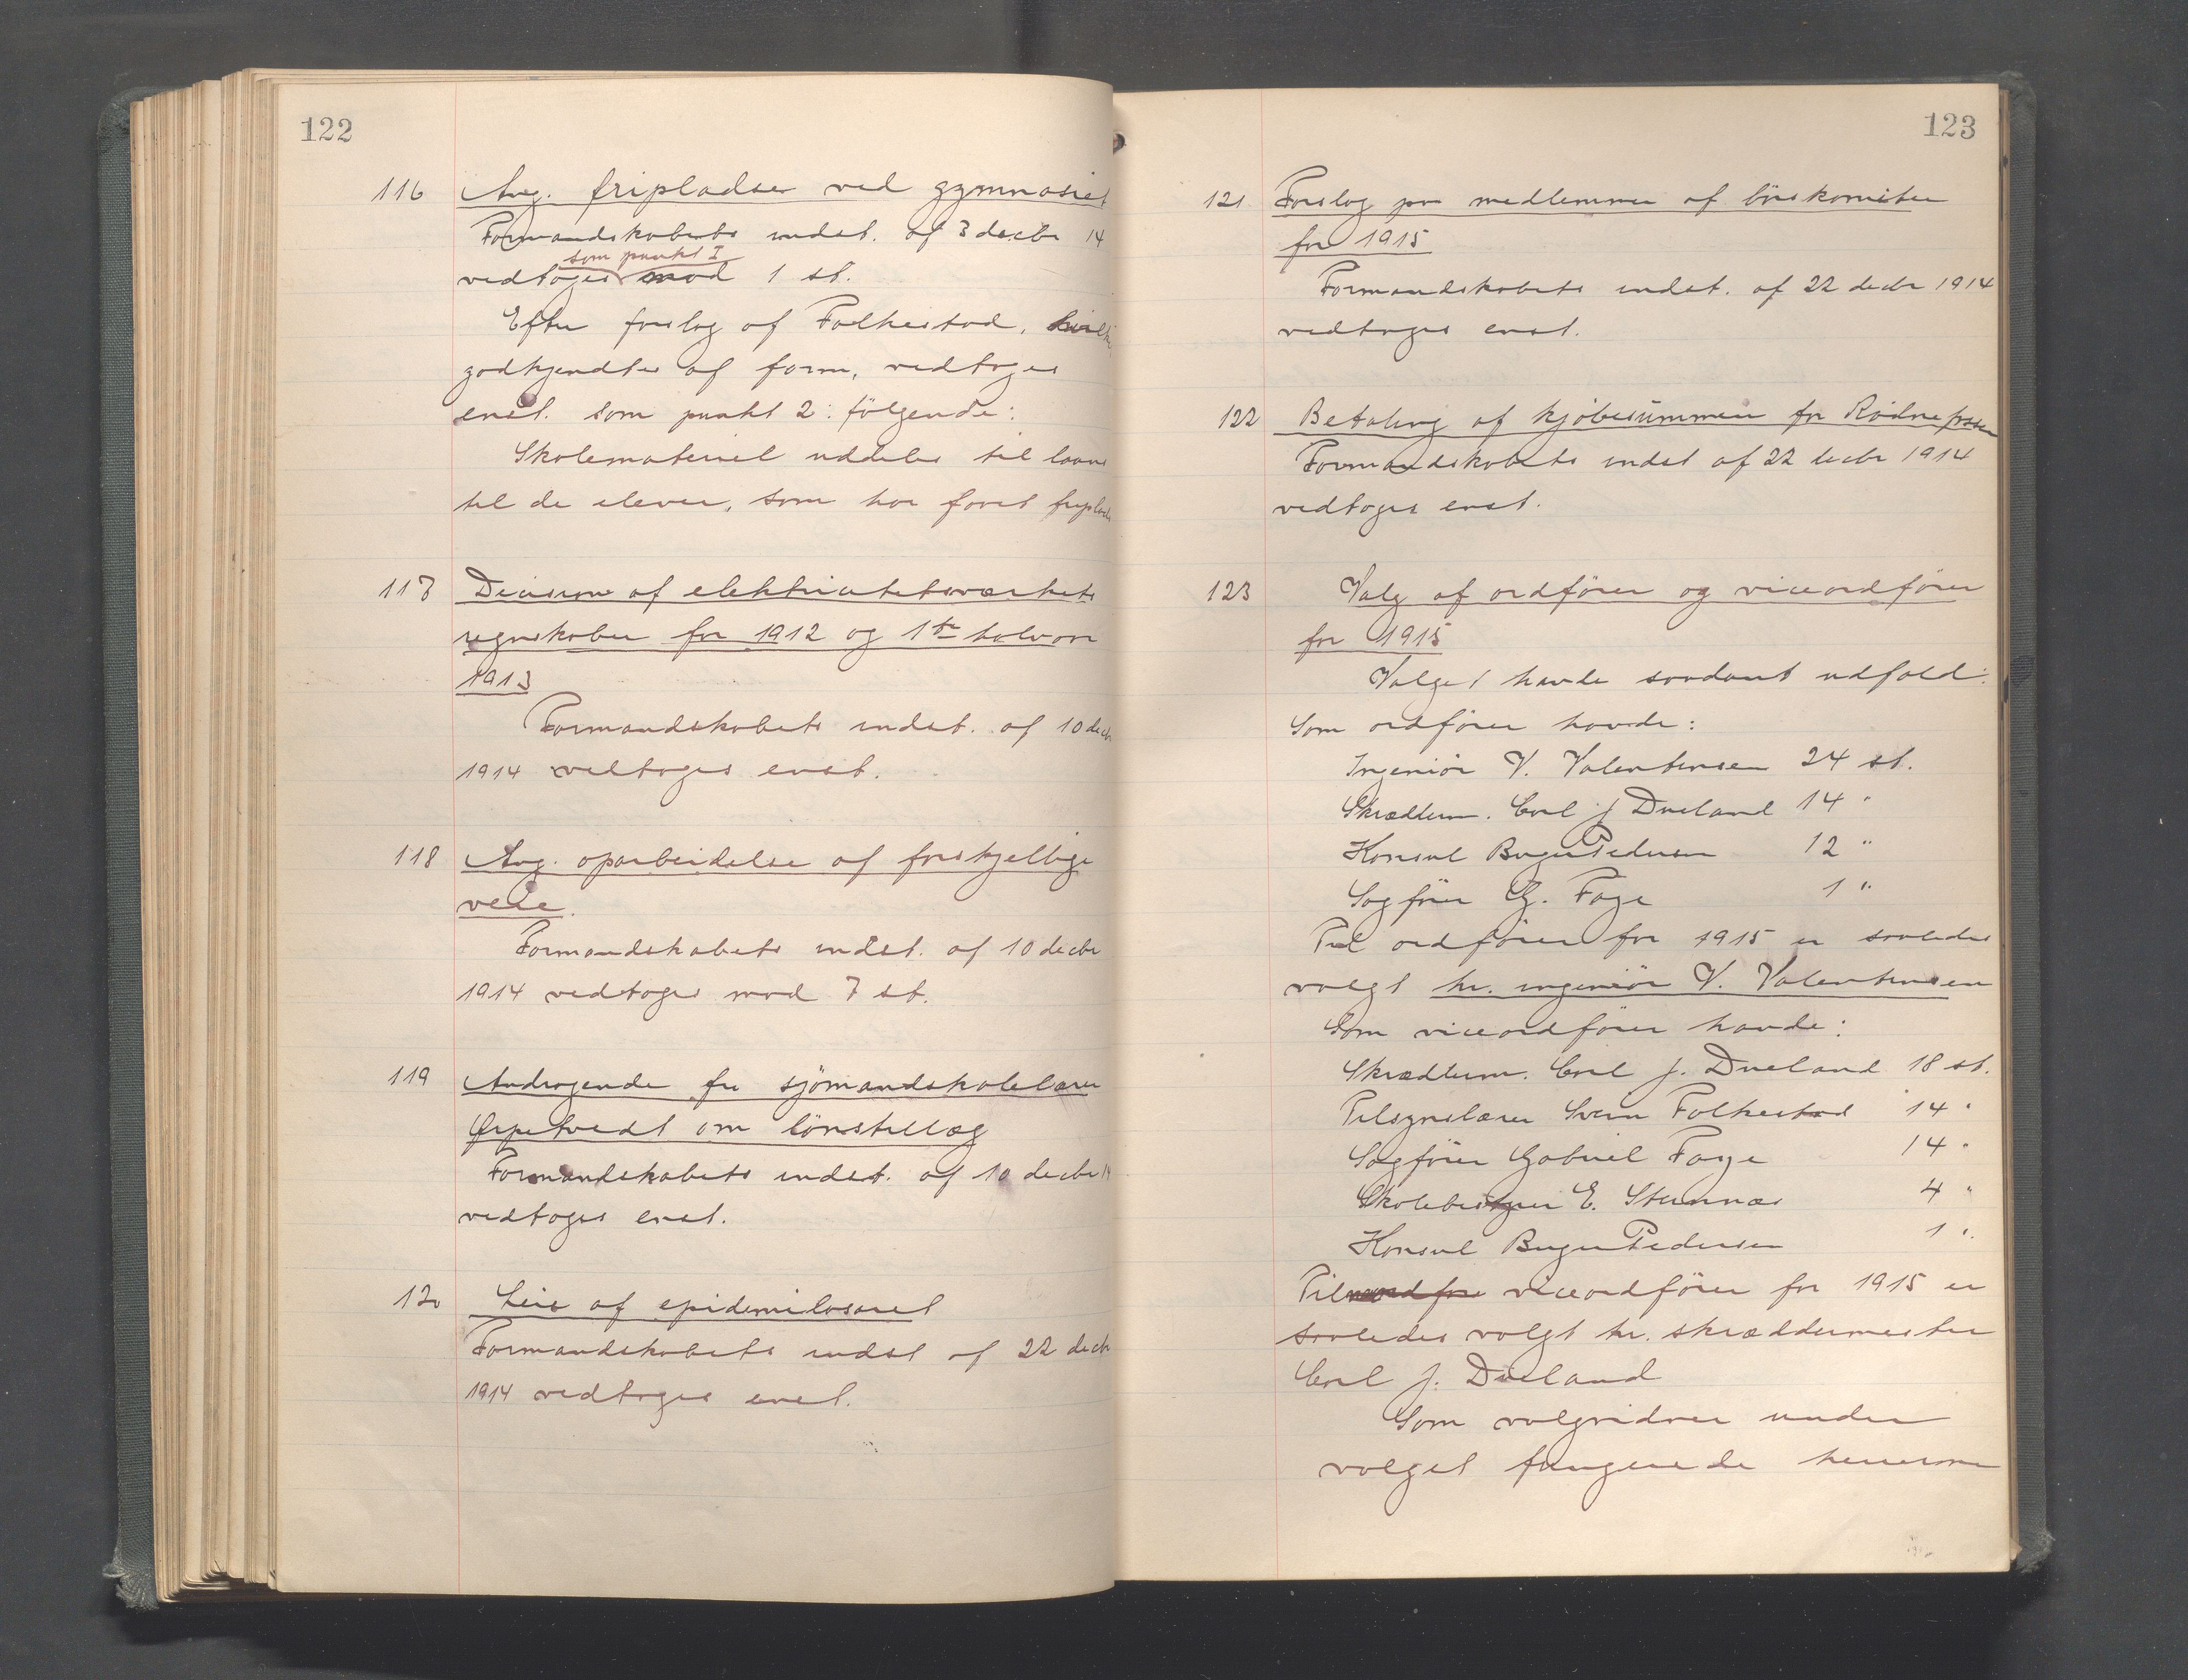 122
116 Ang. fripladser ved gymnasiet
Formandskabets indst. af 3 decbr 14
som punkt I
vedtoges mod 1 st.
Efter forslag af Folkestad, hvilket
godkjendtes af form, vedtoges
enst. som punkt 2: følgende:
Skolemateriel uddeles til laans
til de elever, som har faaet friplads
117 Decision af elektricitetsværkets
regnskaber for 1912 og 1ste halvaar
1913
Formandskabets indst. af 10 decbr
1914 vedtoges enst.
118 Ang. oparbeidelse af forskjellige
veie.
Formandskabets indst. af 10 decbr
1914 vedtoges mod 7 st.
119 Andragende fra sjömandskolelærer
om lönstillæg
Formandskabets indst. af 10 decbr 14
vedtoges enst.
120 Leie af epidemilasaret
Formandskabets indst af 22 decbr
1914 vedtoges enst.
123
121 Forslag paa medlemmer af börskomiteen
for 1915
Formandskabets indst. af 22 decbr 1914
vedtoges enst.
122 Betaling af kjöbesummen for Rödne
Formandskabets indst af 22 decbr 1914
vedtoges enst.
123 Valg af ordförer og viceordförer
for 1915
Valget havde saadant udfald:
Som ordförer havde:
Ingeniör V. Valentinsen 24 st.
Skræddern. Carl J Dueland 14 "
Konsul Birger Pedersen 12 "
Sagförer G. Fage 1 "
Til ordförer for 1915 er saaledes
valgt hr. ingeniör V. Valentinsen
Som viceordförer havde:
Skræddern. Carl J. Dueland 18 st.
Tilsynslærer Svein Folkestad 14 "
Sagförer Gabriel Fage 14 "
Skolebestyrer E. Stennæs 4 "
Konsul Birger Pedersen 1 "
Til viceordförer for 1915 er
saaledes valgt hr. skræddermester
Carl J. Dueland
Som valgvidner under
valget fungerede herrerne